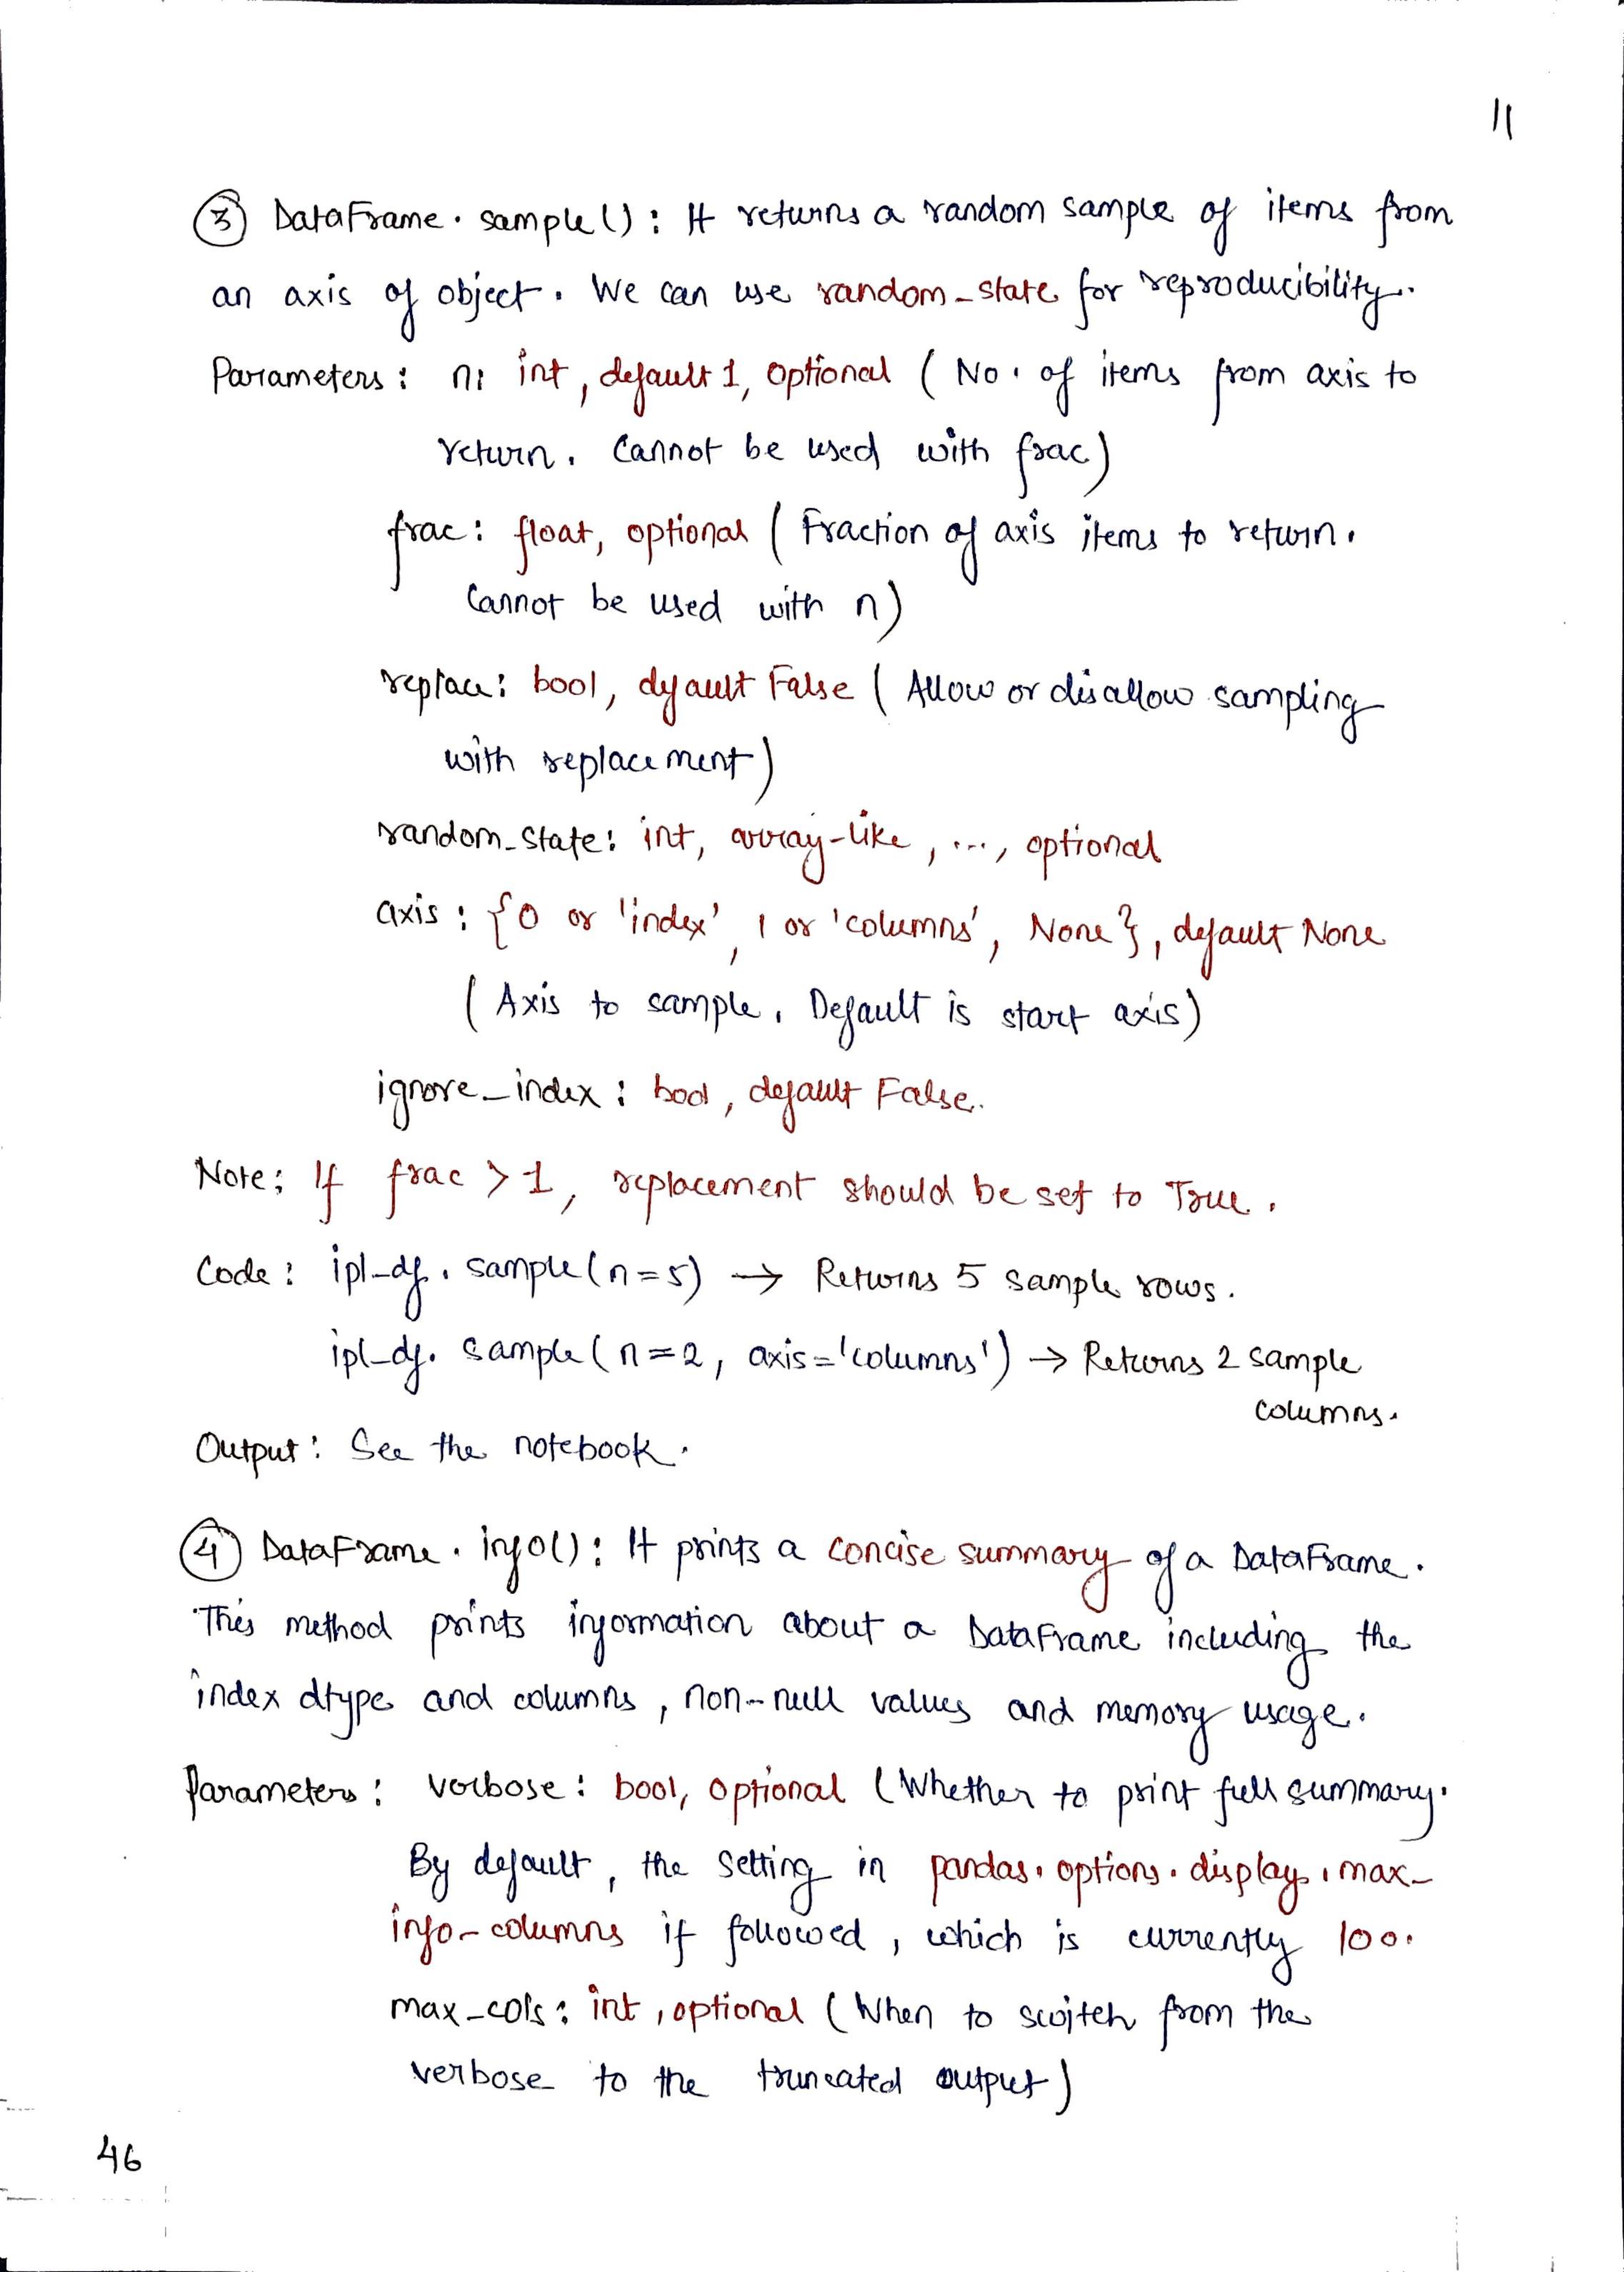 11
③ DataFrame. sample(): It returns a random sample of items from
an axis of object. We can use random_state for reproducibility.
Parameters: n: int, default 1, optional (No. of items from axis to
return. Cannot be used with frac)
frac: float, optional (Fraction of axis items to return.
Cannot be used with n)
replace: bool, default False (Allow or disallow sampling
with replacement)
random_state: int, array-like, ..., optional
axis: {0 or 'index', 1 or 'columns', None}, default None
(Axis to sample. Default is start axis)
ignore_index: bool, default False.
Note: If frac > 1, replacement should be set to True.
Code: ipl_df. sample(n=5) → Returns 5 sample rows.
ipl_df. sample(n=2, axis='columns') → Returns 2 sample
columns.
Output: See the notebook.
④ DataFrame. info(): It prints a concise summary of a DataFrame.
This method prints information about a DataFrame including the
index dtype and columns, non-null values and memory usage.
Parameters: verbose: bool, optional (Whether to print full summary.
By default, the setting in pandas. options. display. max_
info_columns if followed, which is currently 100.
max_cols: int, optional (When to switch from the
verbose to the truncated output)
46